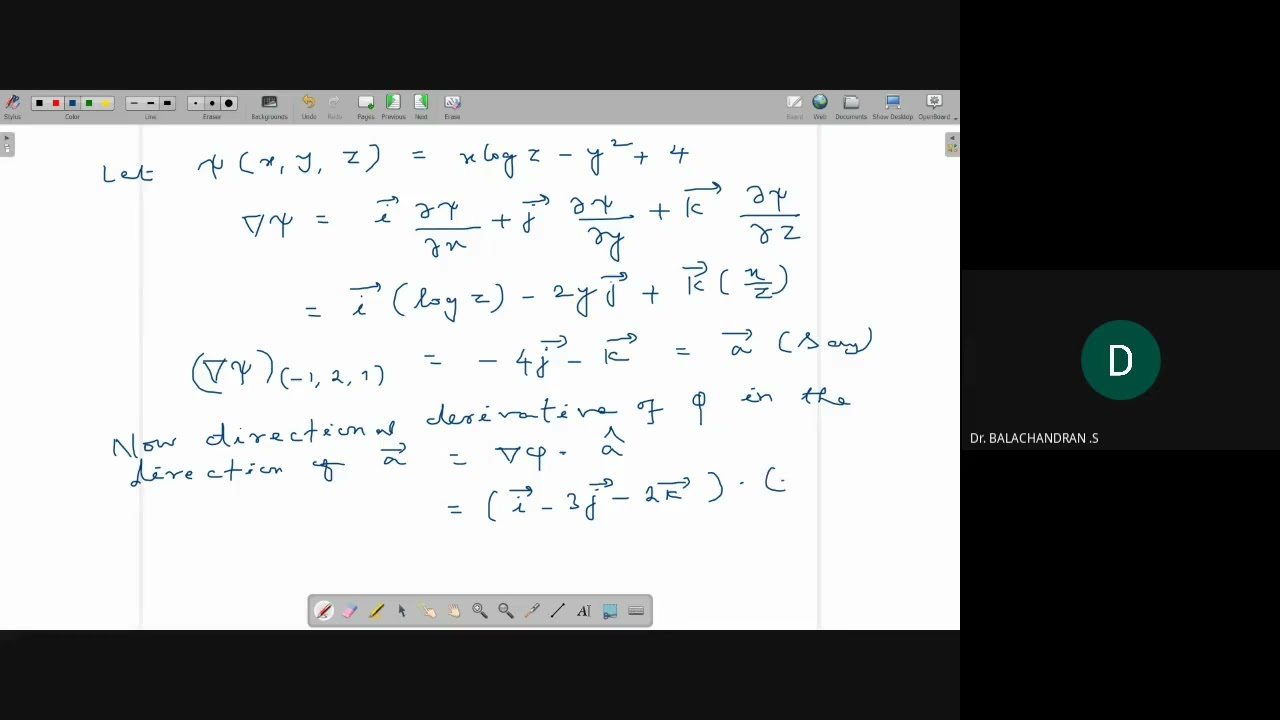 Stylus Color Line Eraser Backgrounds Undo Redo Pages Previous Next Erase Board Web Documents Show Desktop OpenBoard
Let ψ(x, y, z) = x log z − y² + 4
∇ψ = i⃗ ∂ψ/∂x + j⃗ ∂ψ/∂y + k⃗ ∂ψ/∂z
= i⃗ (log z) − 2y j⃗ + k⃗ (x/z)
(∇ψ)(−1, 2, 1) = − 4j⃗ − k⃗ = a⃗ (say)
Now directional derivative of φ in the
direction of a⃗ = ∇φ · â
= (i⃗ − 3j⃗ − 2k⃗) · (-
D
Dr. BALACHANDRAN .S
AI